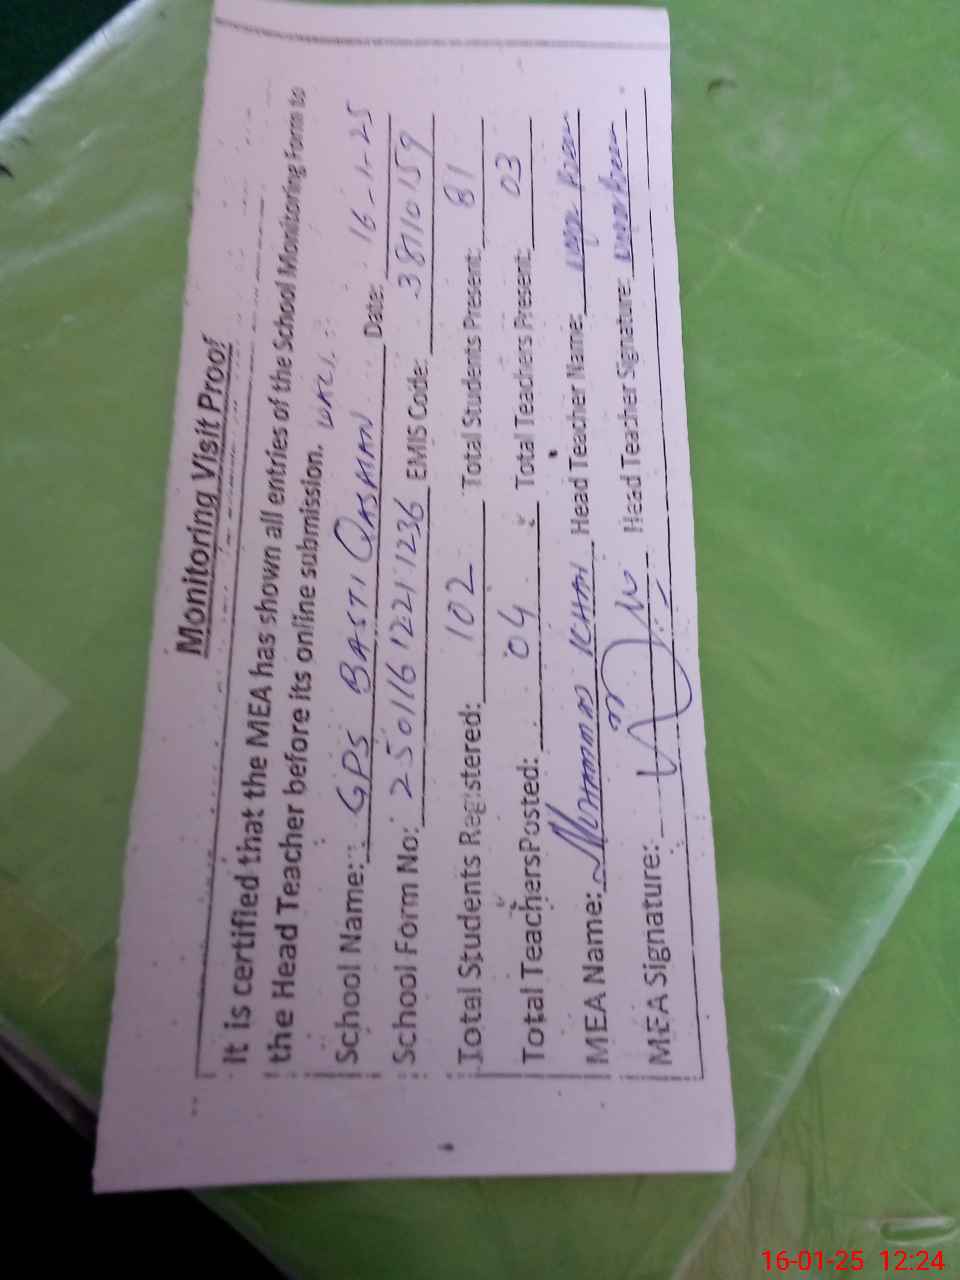 Monitoring Visit Proof
It is certified that the MEA has shown all entries of the School Monitoring Form to
the Head Teacher before its online submission.
School Name: GPS BASTI QASMAN Date: 16-1-25
School Form No: 250116 1221 1236 EMIS Code: 38110159
Total Students Registered: 102 Total Students Present: 81
Total TeachersPosted: 04 Total Teachers Present: 03
MEA Name: MUHAMMAD Head Teacher Name:
MEA Signature: Head Teacher Signature:
16-01-25 12:24